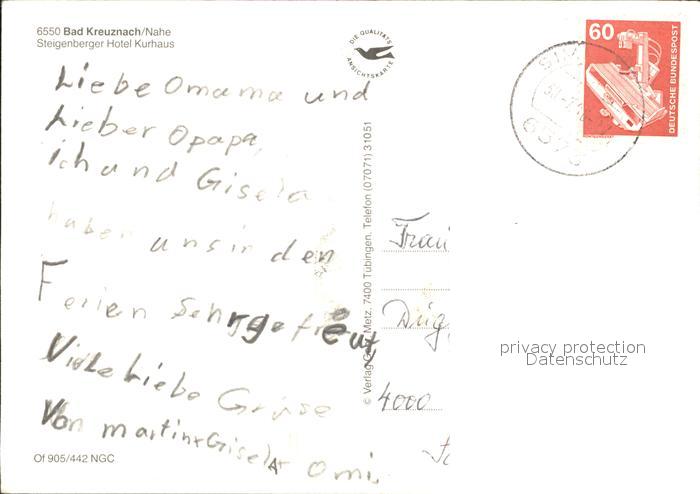 6550 Bad Kreuznach/Nahe
Steigenberger Hotel Kurhaus
DIE QUALITÄTS
ANSICHTSKARTE
60
DEUTSCHE BUNDESPOST
Liebe Omama und
Lieber Opapa,
ich und Gisela
haben uns in den
Ferien Sehr gefreut
Viele Liebe Grüse
Von martin + Gisela
Omi
© Verlag Metz, 7400 Tübingen, Telefon (07071) 31051
Frau
4000
privacy protection
Datenschutz
Of 905/442 NGC